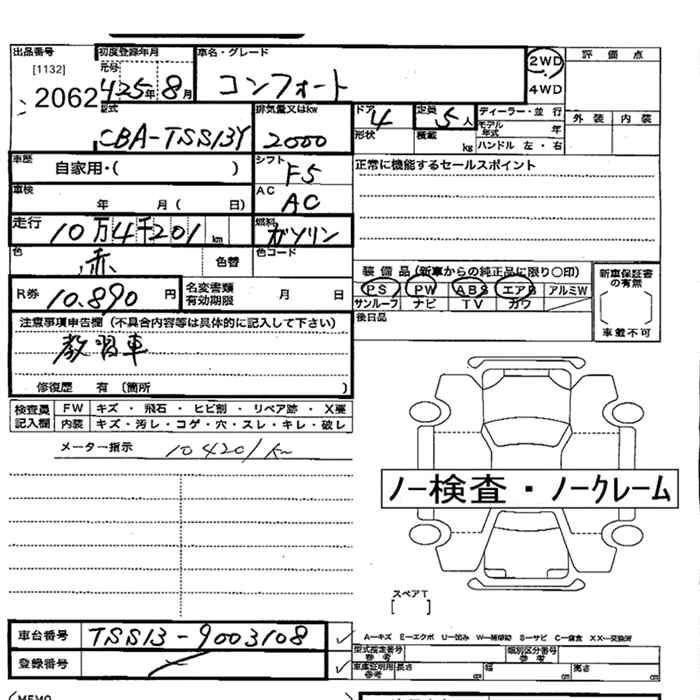 出品番号 初度登録年月 車名・グレード 2WD 評価点
[1132] 元号 コンフォート 4WD
2062 H25年8月
型式 排気量又はkw ドア 定員 ディーラー・並行 外装 内装
CBA-TSS13Y 2000 4 5人 モデル年式 年
形状 積載 kg ハンドル 左・右
車歴 自家用・( ) シフト F5 正常に機能するセールスポイント
車検 年 月( 日) AC AC
走行 10万4千201km 燃料 ガソリン
色 赤 色替 色コード
装備品(新車からの純正品に限り○印) 新車保証書の有無
R券 10.890円 名変書類有効期限 月 日 PS PW ABS エアB アルミW
サンルーフ ナビ TV カワ
注意事項申告欄(不具合内容等は具体的に記入して下さい) 後日品 車載不可
教習車
修復歴 有(箇所 )
検査員記入欄 FW キズ・飛石・ヒビ割・リペア跡・X要
内装 キズ・汚レ・コゲ・穴・スレ・キレ・破レ
メーター指示 104201km
ノー検査・ノークレーム
スペアT
[ ]
車台番号 TSS13-9003108 A-キズ E-エクボ U-凹み W-補修跡 S-サビ C-腐食 XX-交換済
型式指定番号参考 類別区分番号参考
登録番号 車庫証明用参考 長さ cm 幅 cm 高さ cm
MEMO